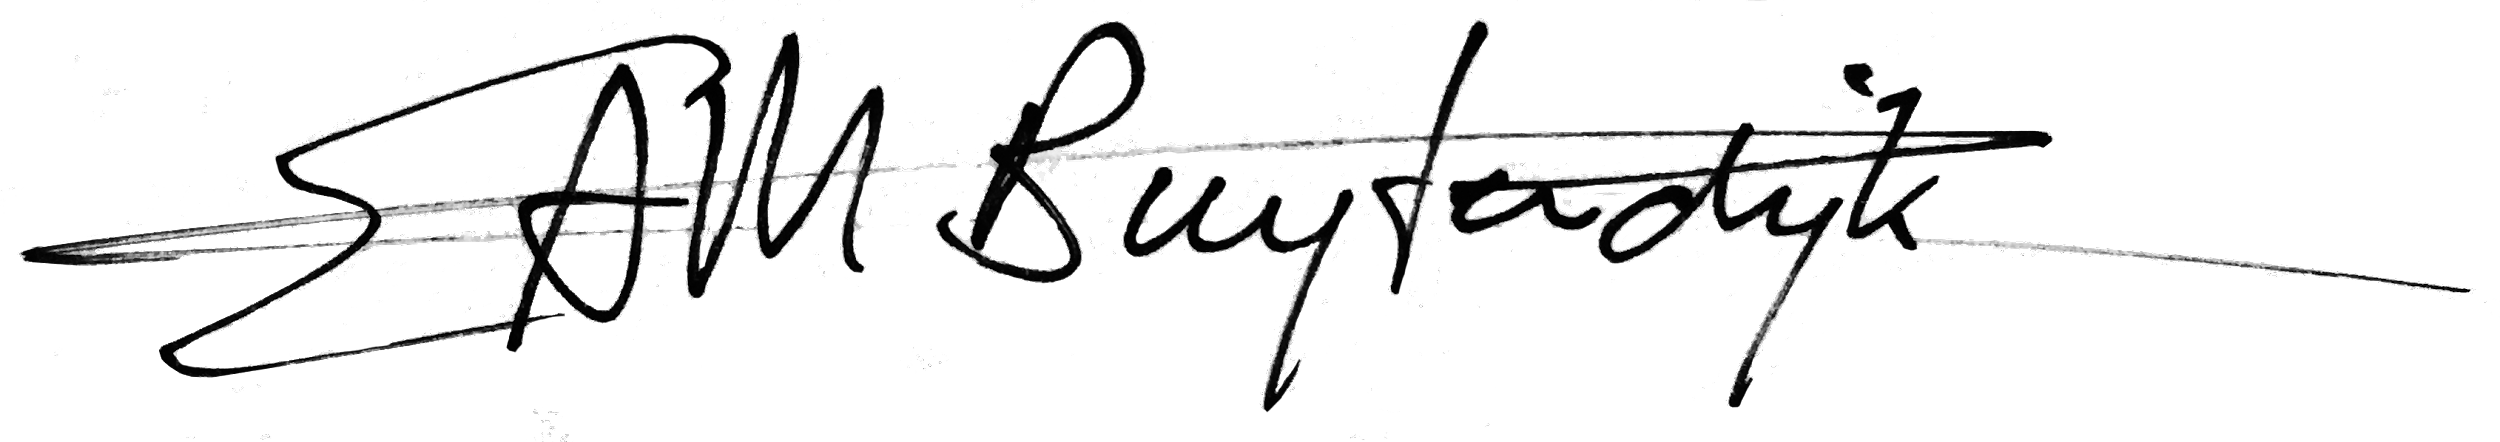 EAM Buytendijk